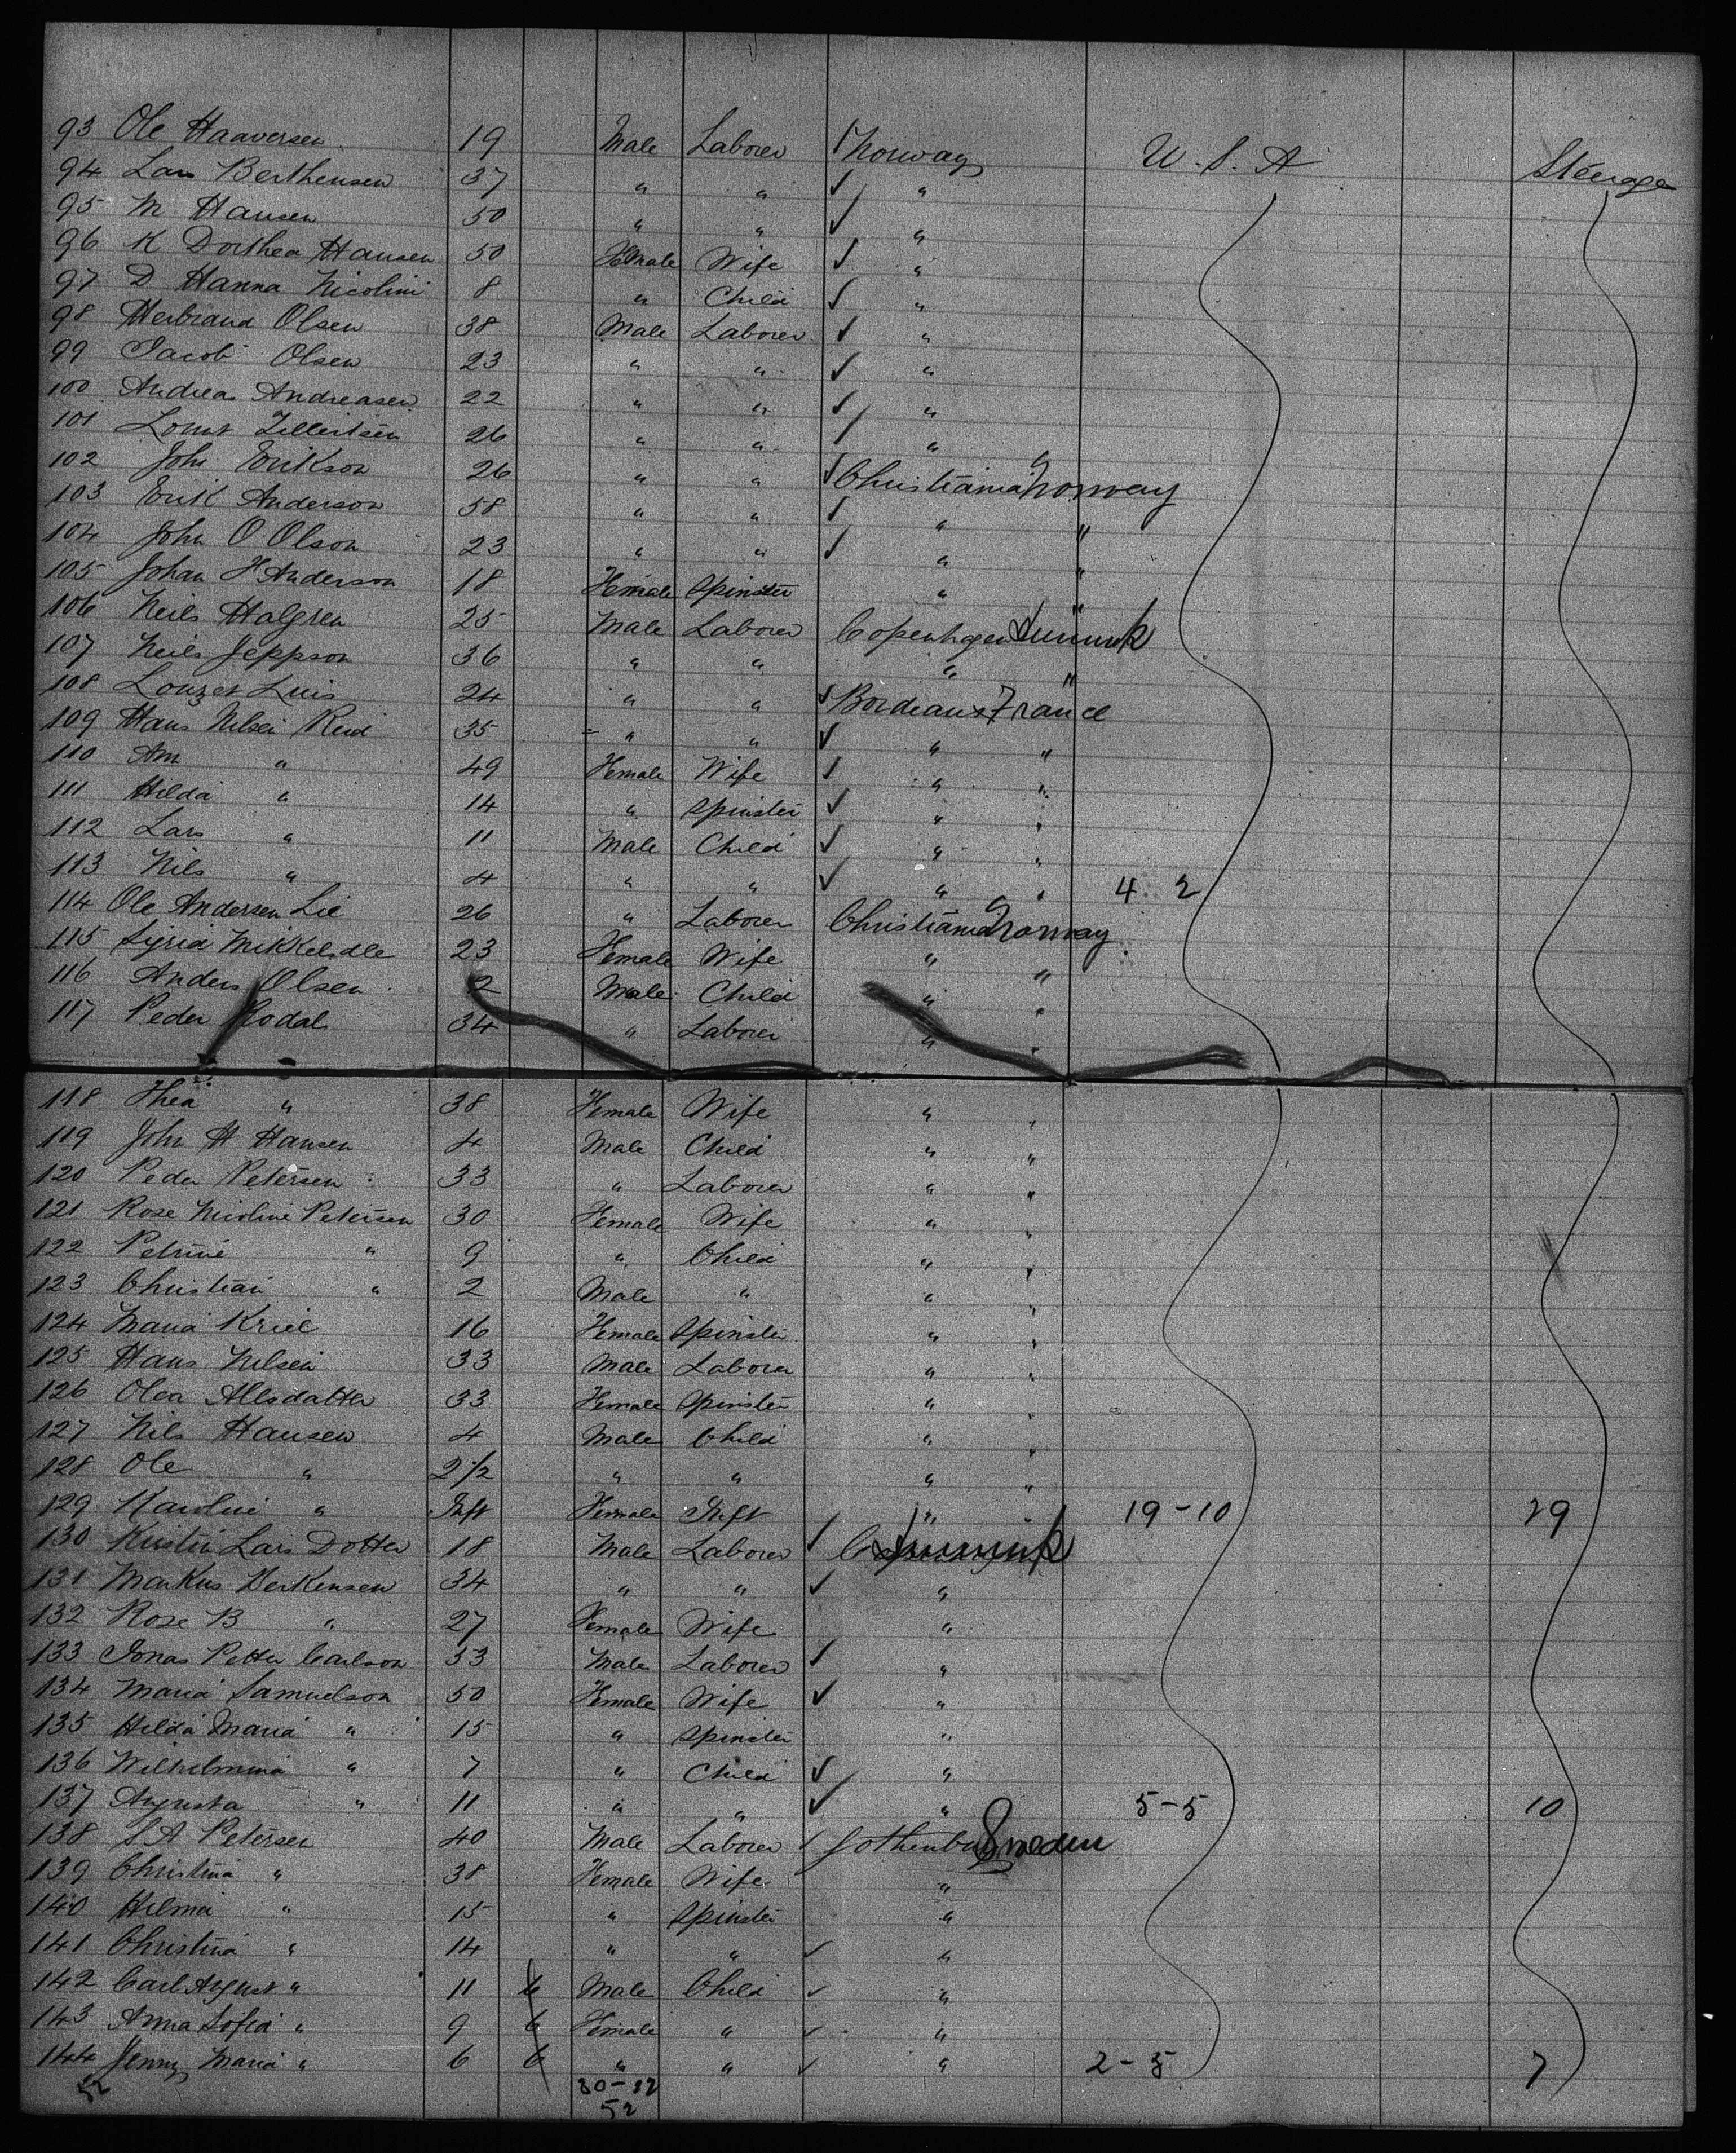 93 Ole Haaversen 19 Male Laborer Norway U. S. A Steerage
94 Lars Berthensen 37 " " "
95 M Hansen 50 " " "
96 K Dorthea Hansen 50 Female Wife "
97 D Hanna Nicolini 8 " Child "
98 Herbrand Olsen 38 Male Laborer "
99 Jacob Olsen 23 " " "
100 Andrea Andreasen 22 " " "
101 26 " " "
102 John Erikson 26 " " Christiania Norway
103 Erik Anderson 58 " " " "
104 John O Olson 23 " " " "
105 Johan H Anderson 18 Female Spinster " "
106 Neils Halgren 25 Male Laborer Copenhagen Denmark
107 Neils Jeppson 36 " " " "
108 Louzet Luis 24 " " Bordeaux France
109 Hans Nilsen Reid 35 " " " "
110 Am " 49 Female Wife " "
111 Hilda " 14 " Spinster " "
112 Lars " 11 Male Child " "
113 Nils " 4 " " " " 4 2
114 Ole Andersen Lie 26 " Laborer Christiania Norway
115 Mikkelsdle 23 Female Wife " "
116 Anders Olsen 2 Male Child " "
117 Peder Rodal 34 " Laborer " "
118 Thea " 38 Female Wife " "
119 John H Hansen 4 Male Child " "
120 Peder Petersen 33 " Laborer " "
121 Rose Nicoline Petersen 30 Female Wife " "
122 Petrine " 9 " Child " "
123 Christian " 2 Male " " "
124 Maria Kriel 16 Female Spinster " "
125 Hans Nilsen 33 Male Laborer " "
126 Olea Allsdatter 33 Female Spinster " "
127 Nils Hansen 4 Male Child " "
128 Ole " 2 1/2 " " " "
129 Karoline " Inft Female Inft " " 19-10 29
130 Kirstin Lars Dotter 18 Male Laborer Denmark
131 Markus Berkensen 34 " " "
132 Rose B " 27 Female Wife "
133 Jonas Petter Carlson 33 Male Laborer "
134 Maria Samuelson 50 Female Wife "
135 Hilda Maria " 15 " Spinster "
136 Wilhelmina " 7 " Child "
137 Augusta " 11 " " " 5-5 10
138 S A Petersen 40 Male Laborer Gothenburg Sweden
139 Christina " 38 Female Wife "
140 Hilma " 15 " Spinster "
141 Christina " 14 " " "
142 Carl August " 11 6 Male Child "
143 Anna Sofia " 9 6 Female " "
144 Jenny Maria " 6 6 " " " 2-5 7
52 30-22
52